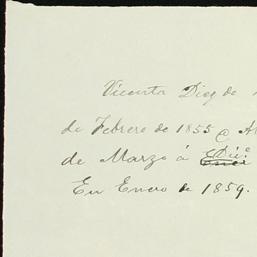 Vicenta Diez de
de Febrero de 1855
de Marzo á Dic.e
En Enero de 1859.